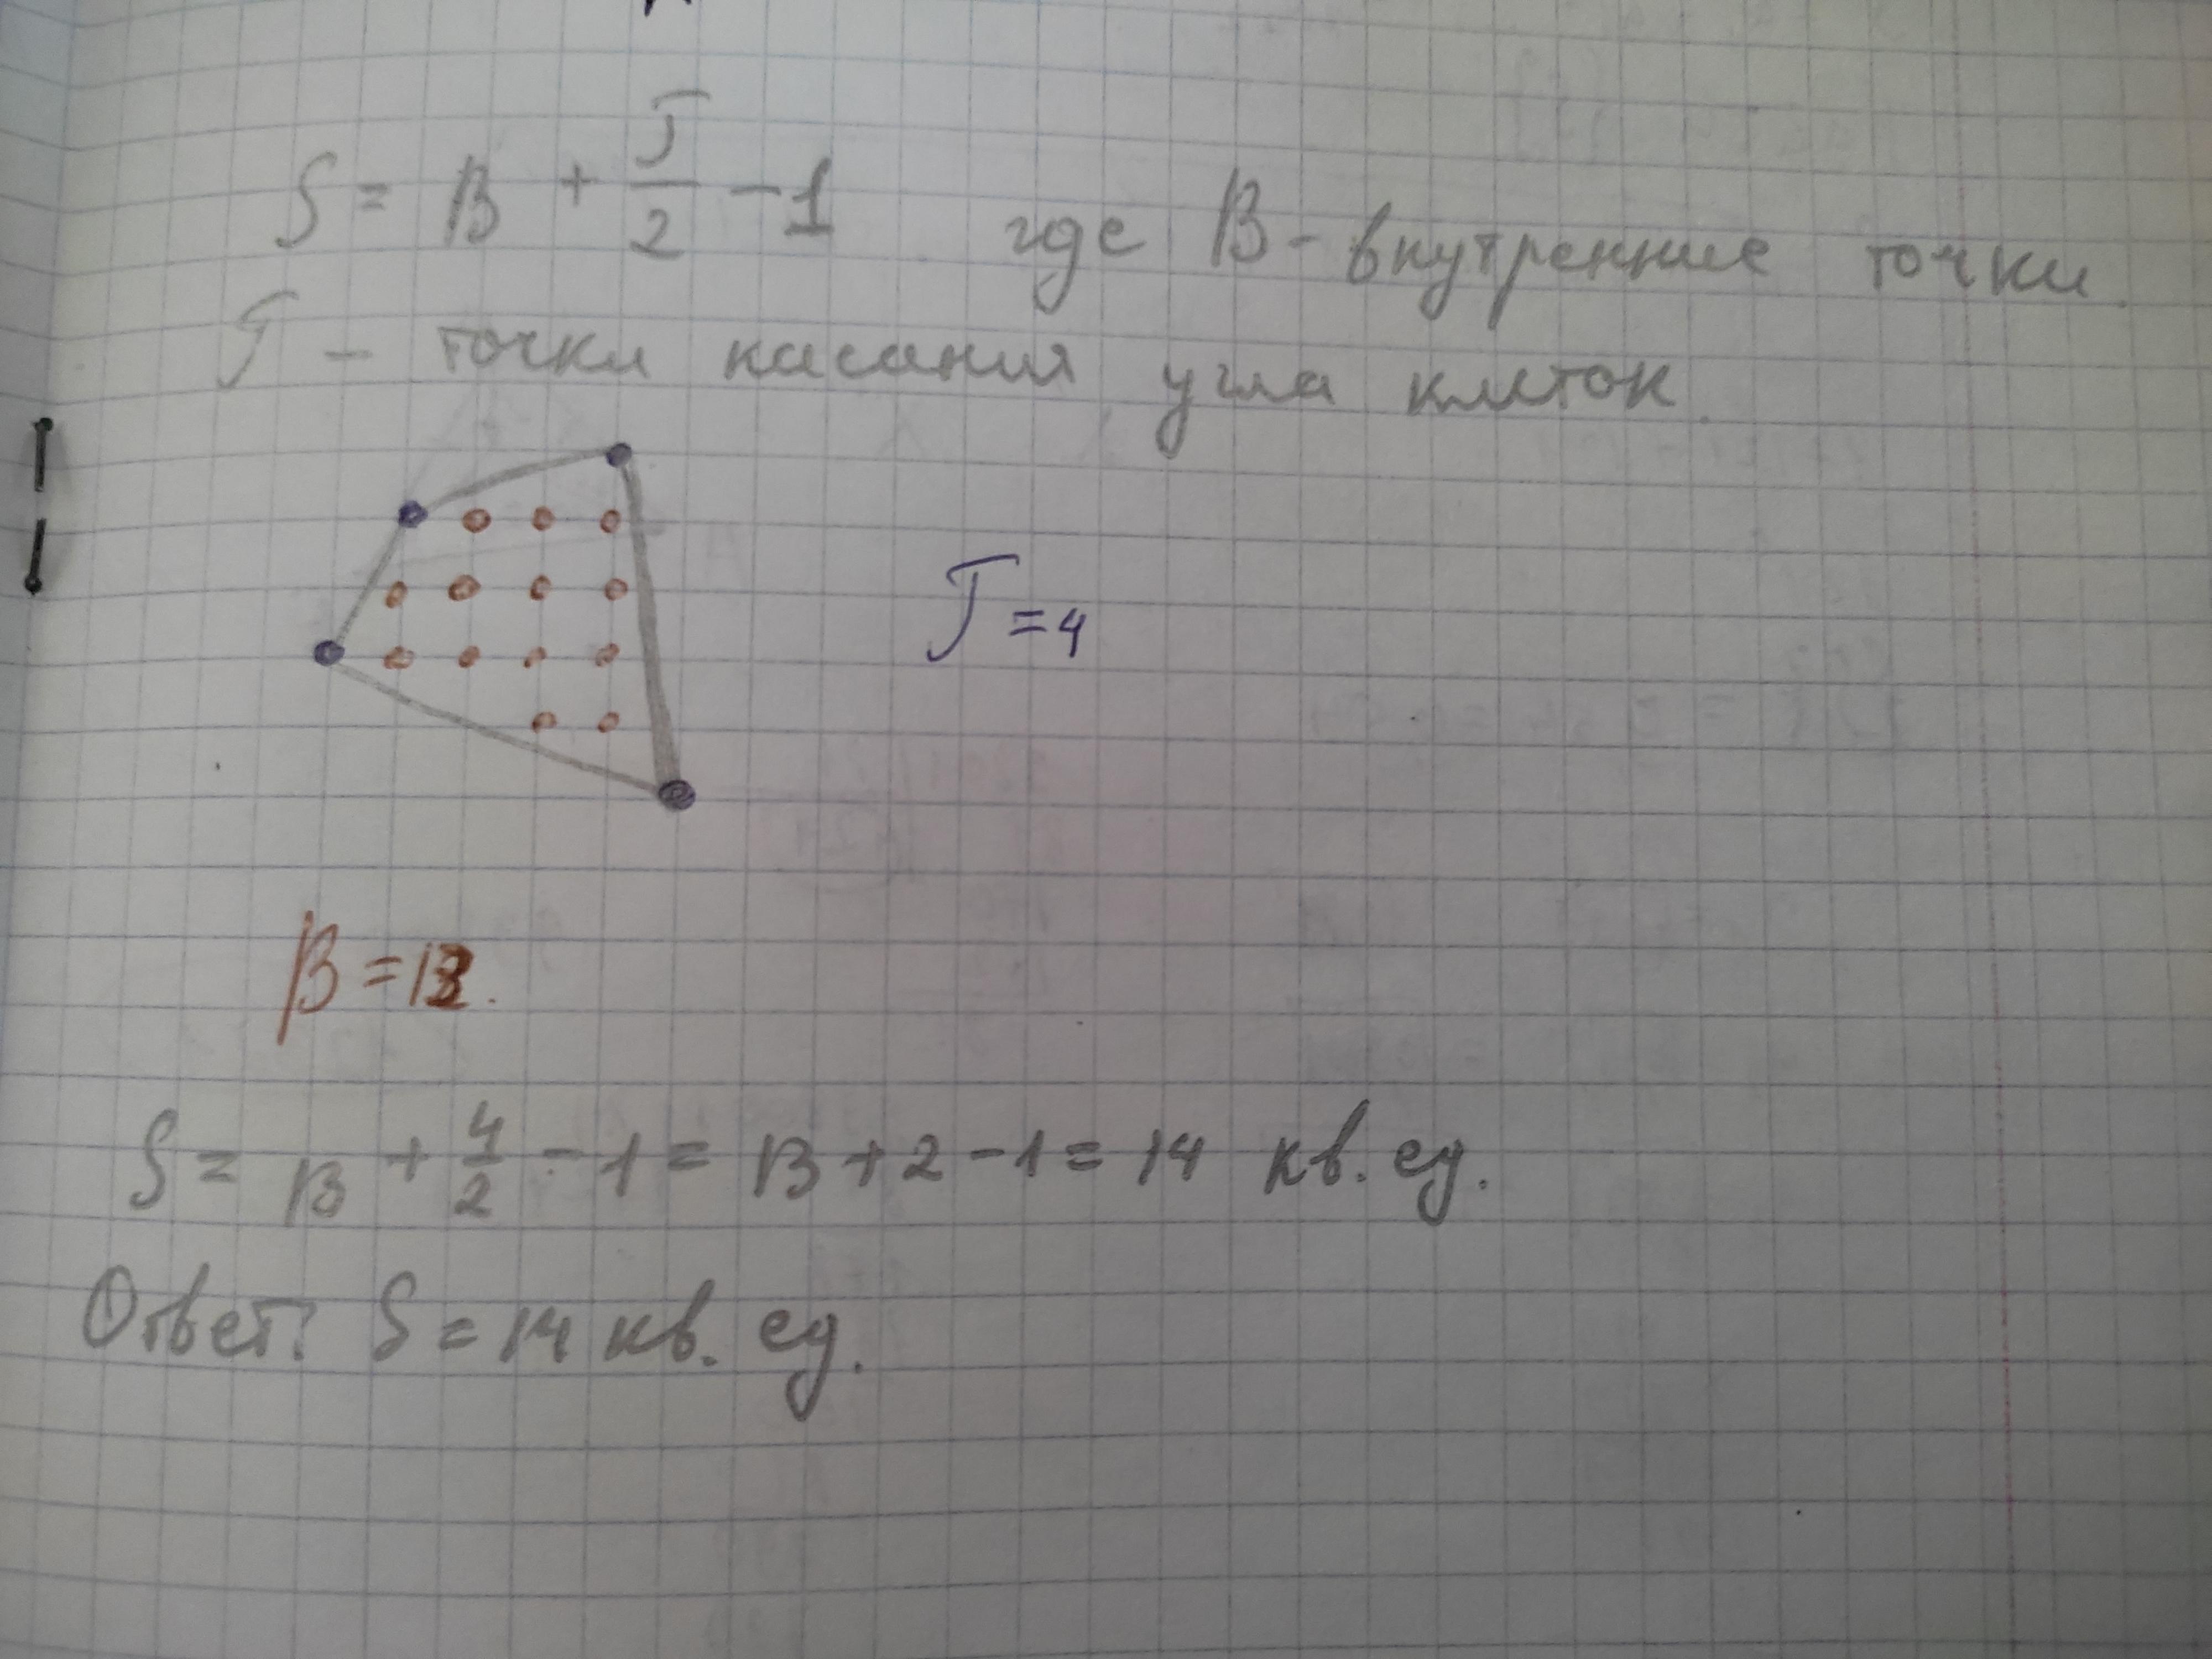 S = В + Г/2 - 1 где В - внутренние точки.
Г - точки касания угла клеток.
Г = 4
В = 13.
S = 13 + 4/2 - 1 = 13 + 2 - 1 = 14 кв. ед.
Ответ: S = 14 кв. ед.